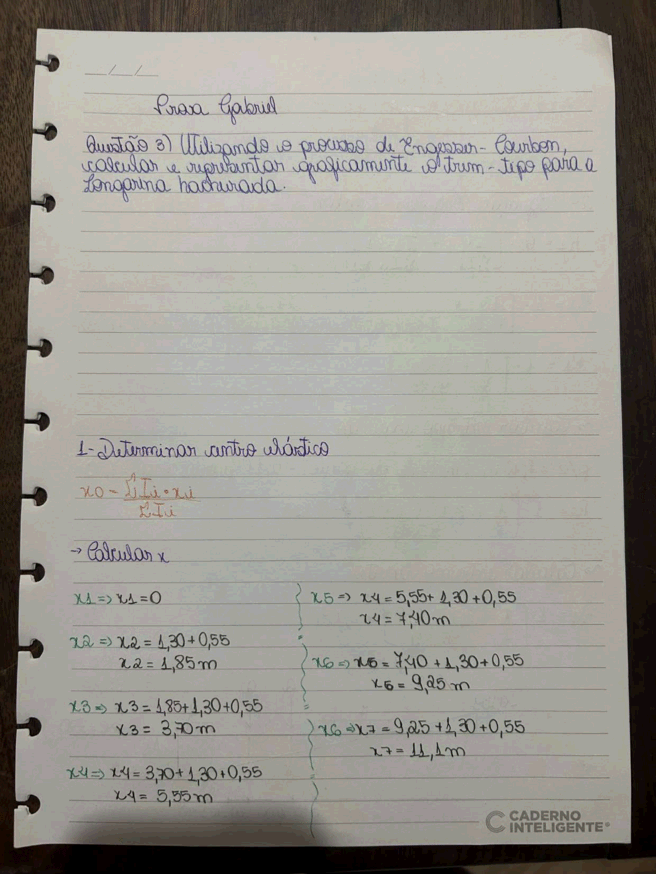 __/__/__
Prova Gabriel
Questão 3) Utilizando o processo de Engesser-Courbon,
calcular e representar graficamente o trem-tipo para a
Longarina hachurada.
1-Determinar centro elástico
x0 = ΣIi·xi
ΣIi
→ Calcular x
x1 => x1 = 0
x2 => x2 = 1,30 + 0,55
x2 = 1,85 m
x3 => x3 = 1,85 + 1,30 + 0,55
x3 = 3,70 m
x4 => x4 = 3,70 + 1,30 + 0,55
x4 = 5,55 m
x5 => x4 = 5,55 + 1,30 + 0,55
x4 = 7,40 m
x6 => x5 = 7,40 + 1,30 + 0,55
x5 = 9,25 m
x6 => x7 = 9,25 + 1,30 + 0,55
x7 = 11,1 m
CADERNO
INTELIGENTE®